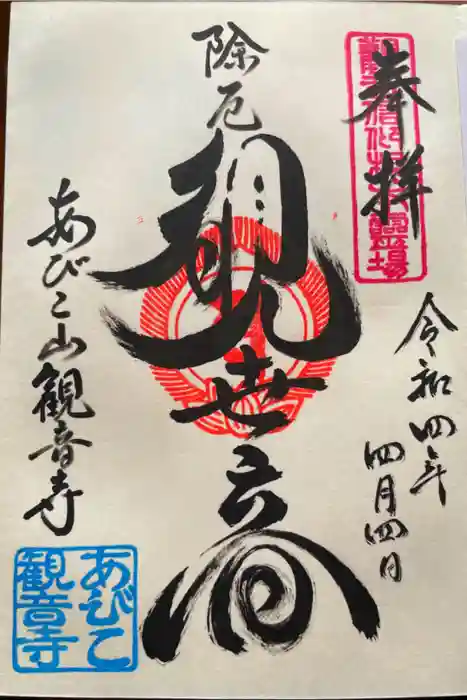 奉拝
令和四年
四月四日
除厄
観世音
あびこ山観音寺
あびこ
観音寺